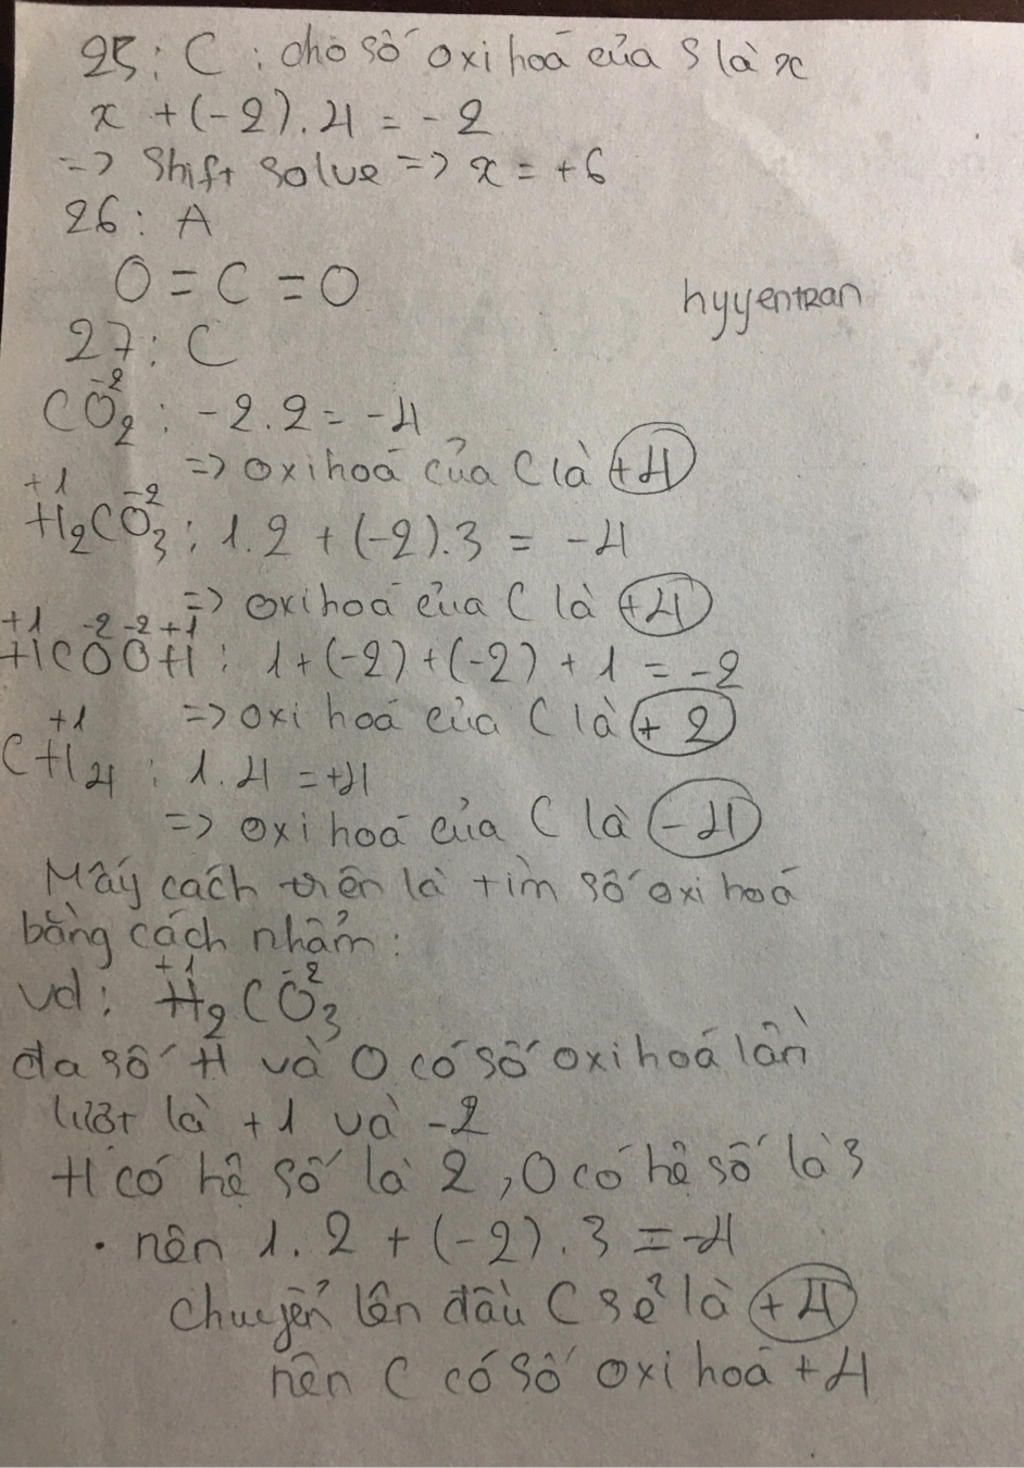 25: C : cho số oxi hoá của S là x
x + (-2).4 = -2
=> Shift solve => x = +6
26: A
O = C = O
hyyentran
27: C
-2
CO2 : -2.2 = -4
=> oxi hoá của C là +4
+1 -2
H2CO3 : 1.2 + (-2).3 = -4
=> oxi hoá của C là +4
+1 -2 -2 +1
HCOOH : 1 + (-2) + (-2) + 1 = -2
=> oxi hoá của C là + 2
+1
CH4 : 1.4 = +4
=> oxi hoá của C là -4
Mấy cách trên là tìm số oxi hoá
bằng cách nhẩm :
+1 -2
vd : H2CO3
đa số H và O có số oxi hoá lần
lượt là +1 và -2
H có hệ số là 2, O có hệ số là 3
. nên 1.2 + (-2).3 = -4
chuyển lên đầu C sẽ là +4
nên C có số oxi hoá +4